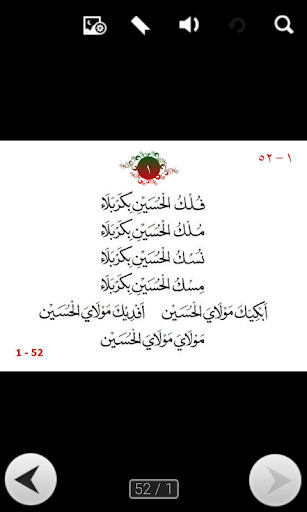 ١
٥٢ – ١
فُلْكُ الْحُسَيْنِ بِكَرْبَلَاءِ
مُلْكُ الْحُسَيْنِ بِكَرْبَلَاءِ
نُسُكُ الْحُسَيْنِ بِكَرْبَلَاءِ
مِسْكُ الْحُسَيْنِ بِكَرْبَلَاءِ
أَبْكِيْكَ مَوْلَايَ الْحُسَيْن أَفْدِيْكَ مَوْلَايَ الْحُسَيْن
مَوْلَايَ مَوْلَايَ الْحُسَيْن
1 - 52
52 / 1